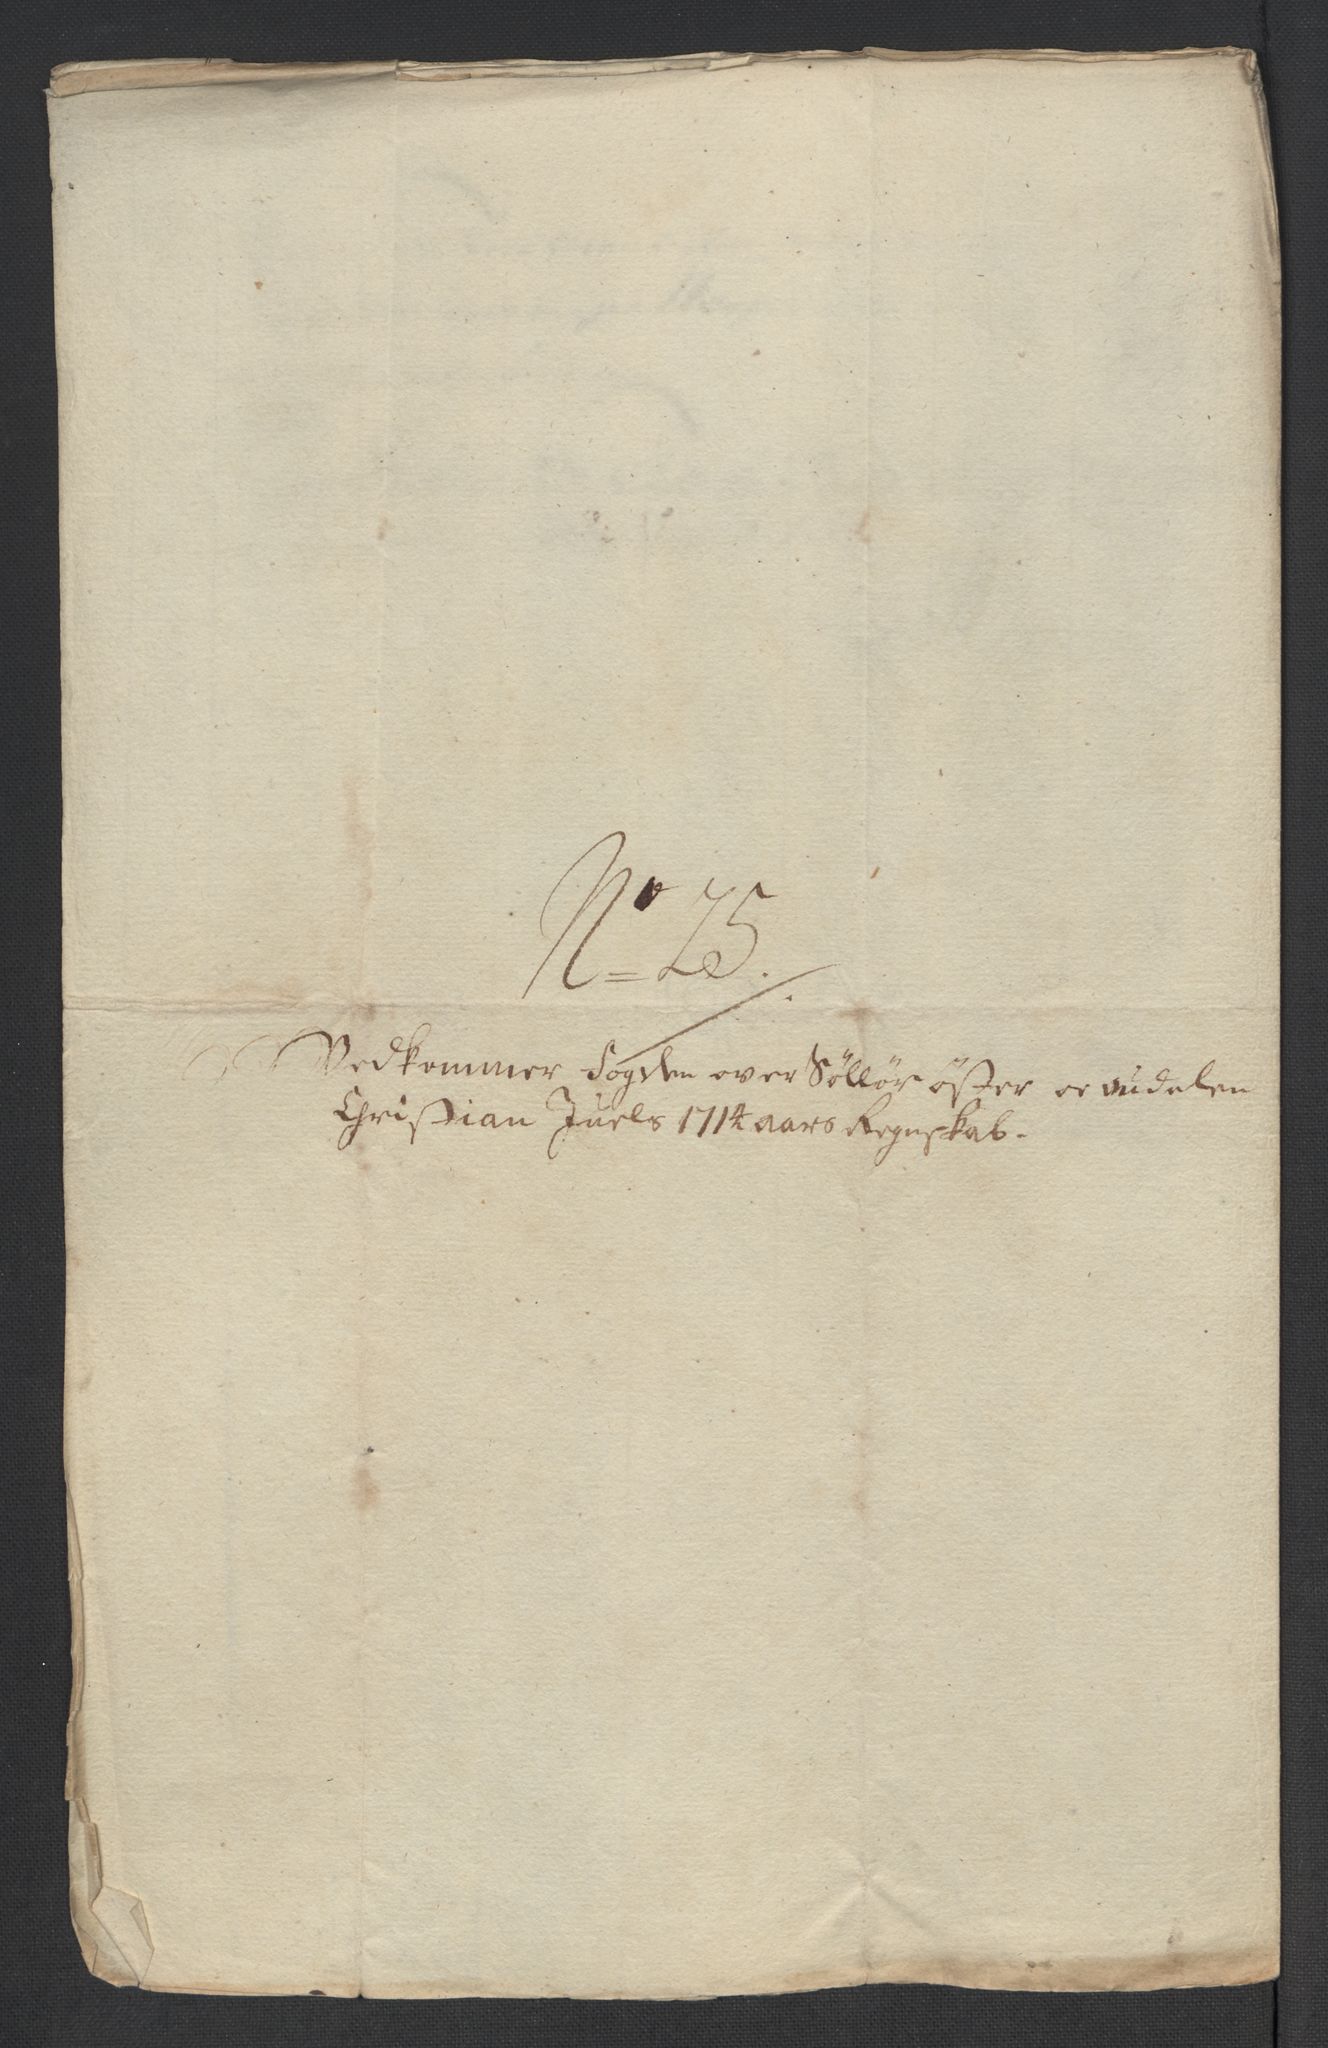 No 25.
Vedkommer Fogden over Söllör öster oc oudalen
Christian Juels 1714 aars Regnskab.